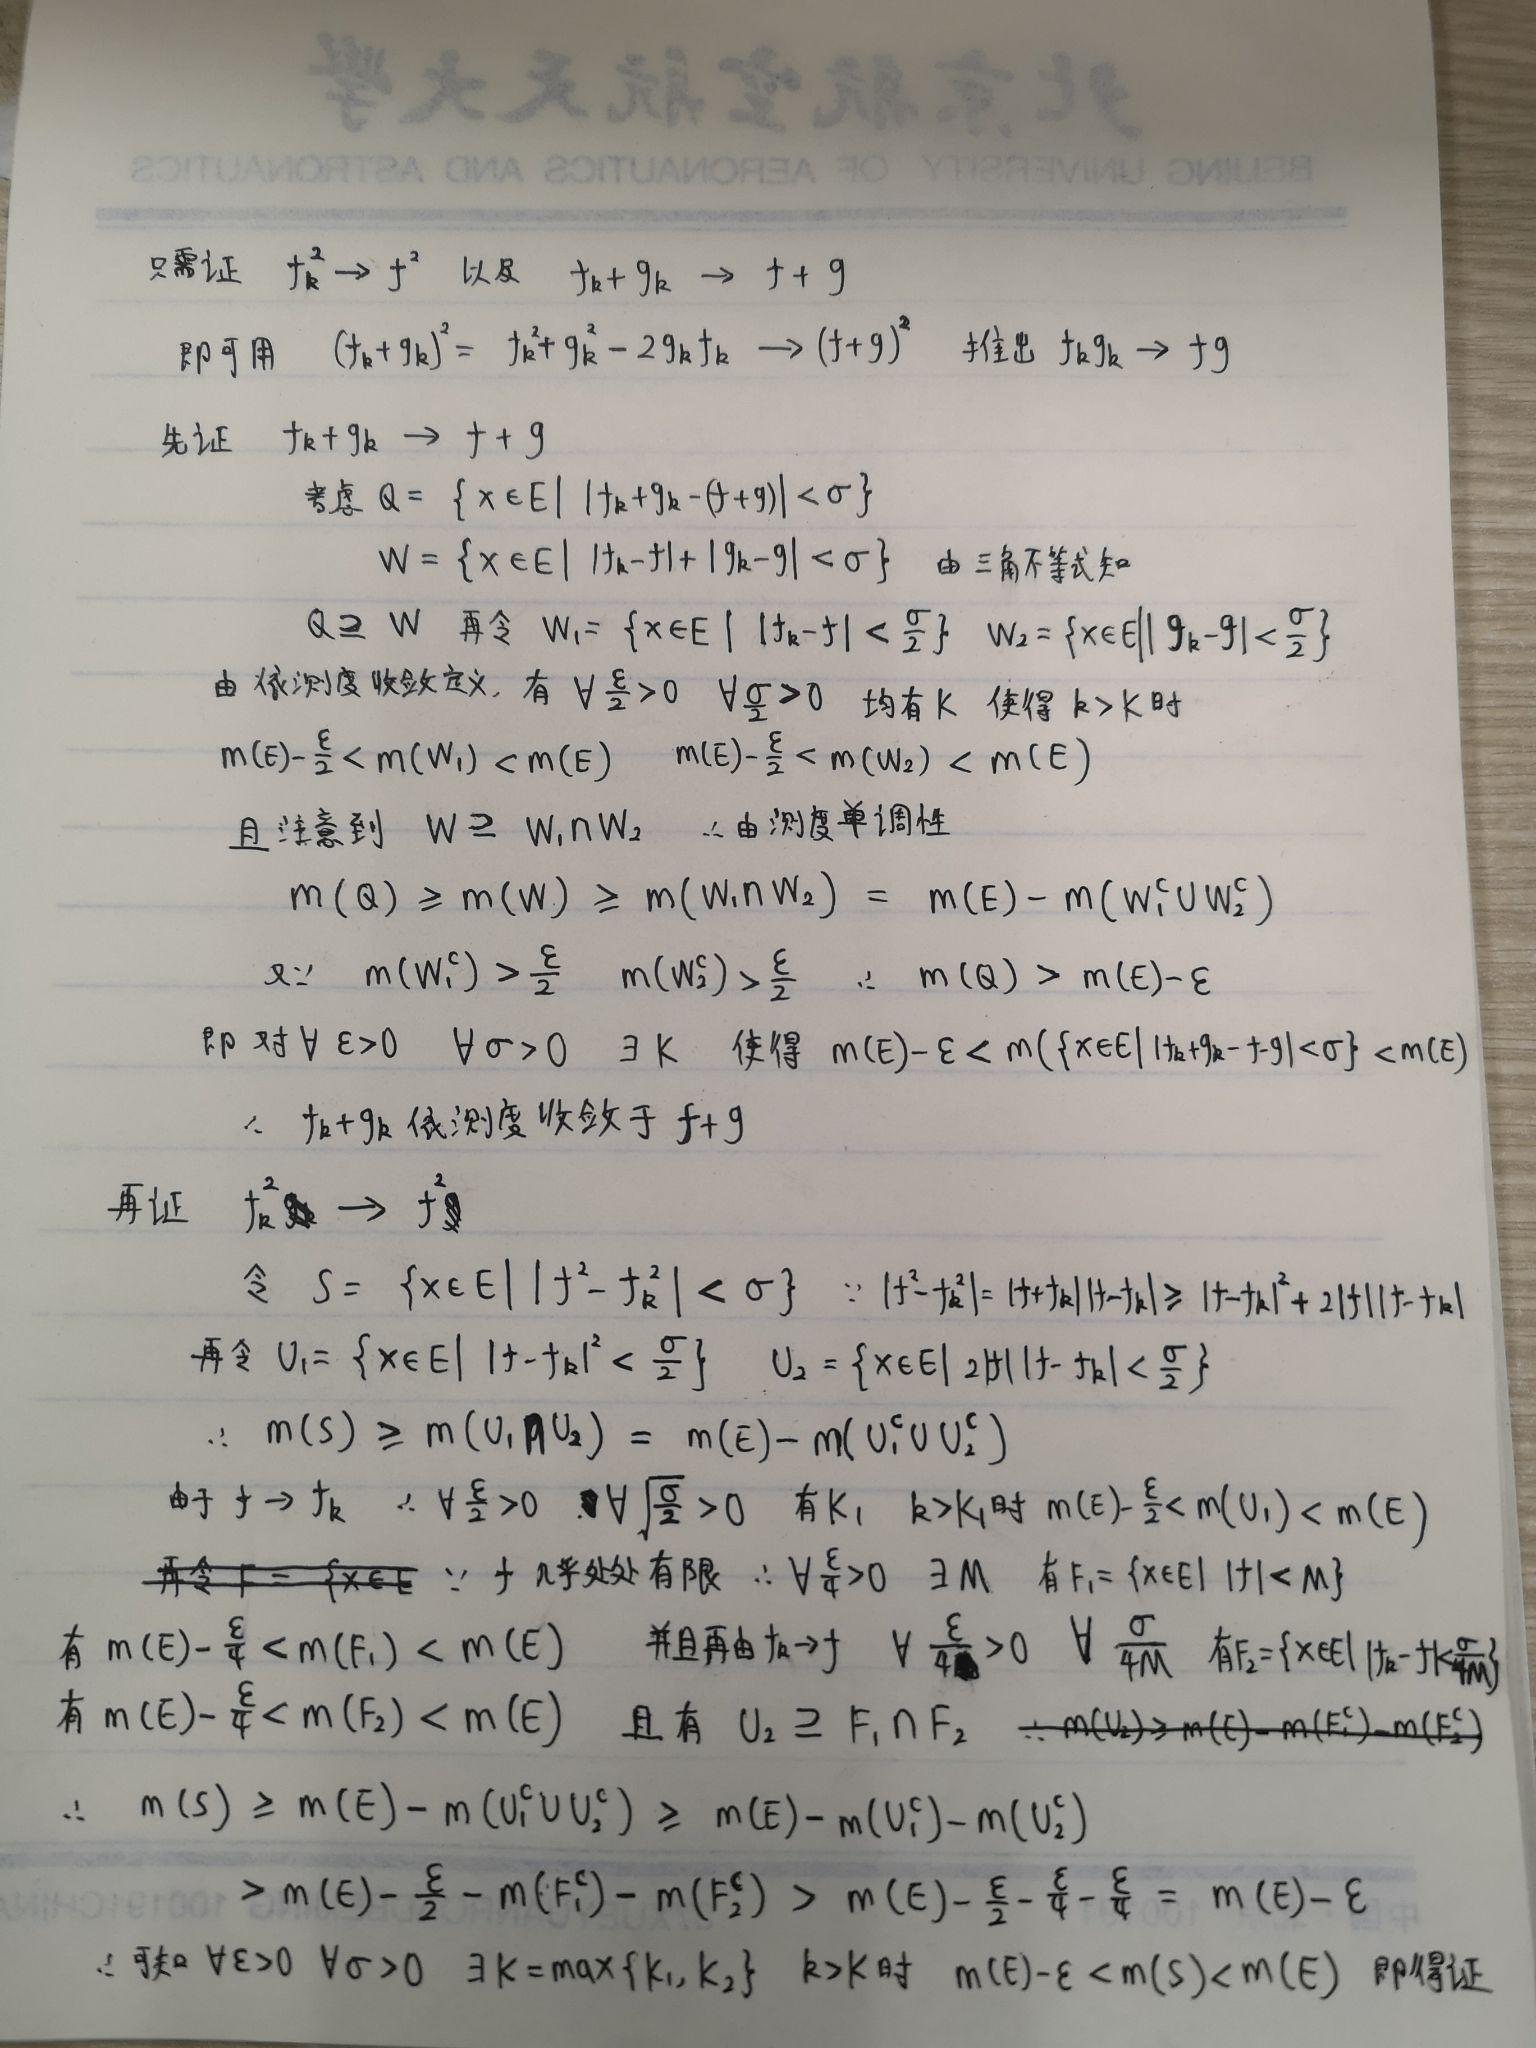 北京航空航天大學
BEIJING UNIVERSITY OF AERONAUTICS AND ASTRONAUTICS
只需证 f_k² → f² 以及 f_k + g_k → f + g
即可用 (f_k+g_k)² = f_k² + g_k² - 2g_k f_k → (f+g)² 推出 f_k g_k → fg
先证 f_k + g_k → f + g
考虑 Q = {x∈E| |f_k+g_k-(f+g)| < σ}
W = {x∈E| |f_k-f|+|g_k-g| < σ} 由三角不等式知
Q ⊇ W 再令 W₁ = {x∈E| |f_k-f| < σ/2} W₂ = {x∈E| |g_k-g| < σ/2}
由依测度收敛定义, 有 ∀ ε/2 > 0 ∀ σ/2 > 0 均有 K 使得 k > K 时
m(E) - ε/2 < m(W₁) < m(E) m(E) - ε/2 < m(W₂) < m(E)
且注意到 W ⊇ W₁∩W₂ ∴ 由测度单调性
m(Q) ≥ m(W) ≥ m(W₁∩W₂) = m(E) - m(W₁ᶜ∪W₂ᶜ)
又∵ m(W₁ᶜ) > ε/2 m(W₂ᶜ) > ε/2 ∴ m(Q) > m(E) - ε
即对 ∀ ε>0 ∀ σ>0 ∃ K 使得 m(E) - ε < m({x∈E| |f_k+g_k-f-g| < σ} < m(E)
∴ f_k+g_k 依测度收敛于 f+g
再证 f_k² → f²
令 S = {x∈E| |f²-f_k²| < σ} ∵ |f²-f_k²| = |f+f_k||f-f_k| ≥ |f-f_k|² + 2|f||f-f_k|
再令 U₁ = {x∈E| |f-f_k|² < σ/2} U₂ = {x∈E| 2|f||f-f_k| < σ/2}
∴ m(S) ≥ m(U₁∩U₂) = m(E) - m(U₁ᶜ∪U₂ᶜ)
由于 f → f_k ∴ ∀ ε/2 > 0 ∀ √(σ/2) > 0 有 K₁ k > K₁ 时 m(E) - ε/2 < m(U₁) < m(E)
再令 F = {x∈E ∵ f 几乎处处有限 ∴ ∀ ε/4 > 0 ∃ M 有 F₁ = {x∈E| |f| < M}
有 m(E) - ε/4 < m(F₁) < m(E) 并且再由 f_k → f ∀ ε/4 > 0 ∀ σ/4M 有 F₂ = {x∈E| |f_k-f| < σ/4M}
有 m(E) - ε/4 < m(F₂) < m(E) 且有 U₂ ⊇ F₁∩F₂ ∴ m(U₂) ≥ m(E) - m(F₁ᶜ) - m(F₂ᶜ)
∴ m(S) ≥ m(E) - m(U₁ᶜ∪U₂ᶜ) ≥ m(E) - m(U₁ᶜ) - m(U₂ᶜ)
> m(E) - ε/2 - m(F₁ᶜ) - m(F₂ᶜ) > m(E) - ε/2 - ε/4 - ε/4 = m(E) - ε
∴ 可知 ∀ε>0 ∀σ>0 ∃ K = max{K₁, K₂} k > K 时 m(E) - ε < m(S) < m(E) 即得证